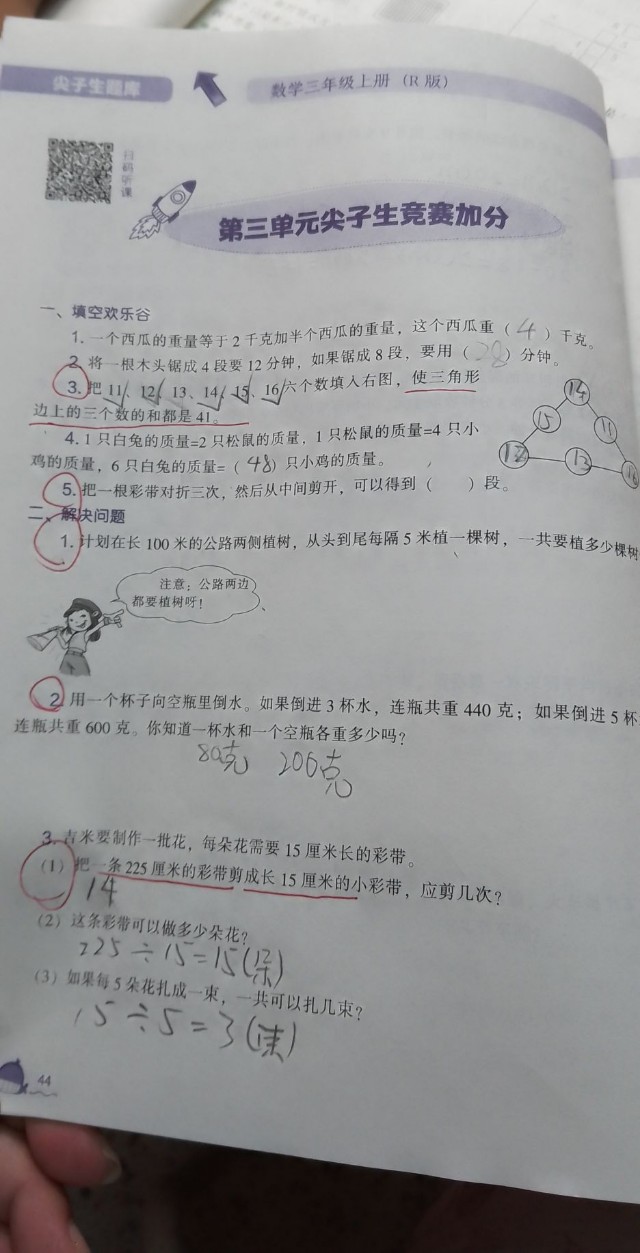 尖子生题库
数学三年级上册（R版）
扫码听课
第三单元尖子生竞赛加分
一、填空欢乐谷
1. 一个西瓜的重量等于2千克加半个西瓜的重量，这个西瓜重（4）千克。
2. 将一根木头锯成4段要12分钟，如果锯成8段，要用（28）分钟。
3. 把11、12、13、14、15、16六个数填入右图，使三角形
边上的三个数的和都是41。
14
15
11
12
13
16
4. 1只白兔的质量=2只松鼠的质量，1只松鼠的质量=4只小
鸡的质量，6只白兔的质量=（48）只小鸡的质量。
5. 把一根彩带对折三次，然后从中间剪开，可以得到（ ）段。
二、解决问题
1. 计划在长100米的公路两侧植树，从头到尾每隔5米植一棵树，一共要植多少棵树
注意：公路两边
都要植树呀！
2. 用一个杯子向空瓶里倒水。如果倒进3杯水，连瓶共重440克；如果倒进5杯
连瓶共重600克。你知道一杯水和一个空瓶各重多少吗？
80克 200克
3. 吉米要制作一批花，每朵花需要15厘米长的彩带。
（1）把一条225厘米的彩带剪成长15厘米的小彩带，应剪几次？
14
（2）这条彩带可以做多少朵花？
225÷15=15(朵)
（3）如果每5朵花扎成一束，一共可以扎几束？
15÷5=3(束)
44